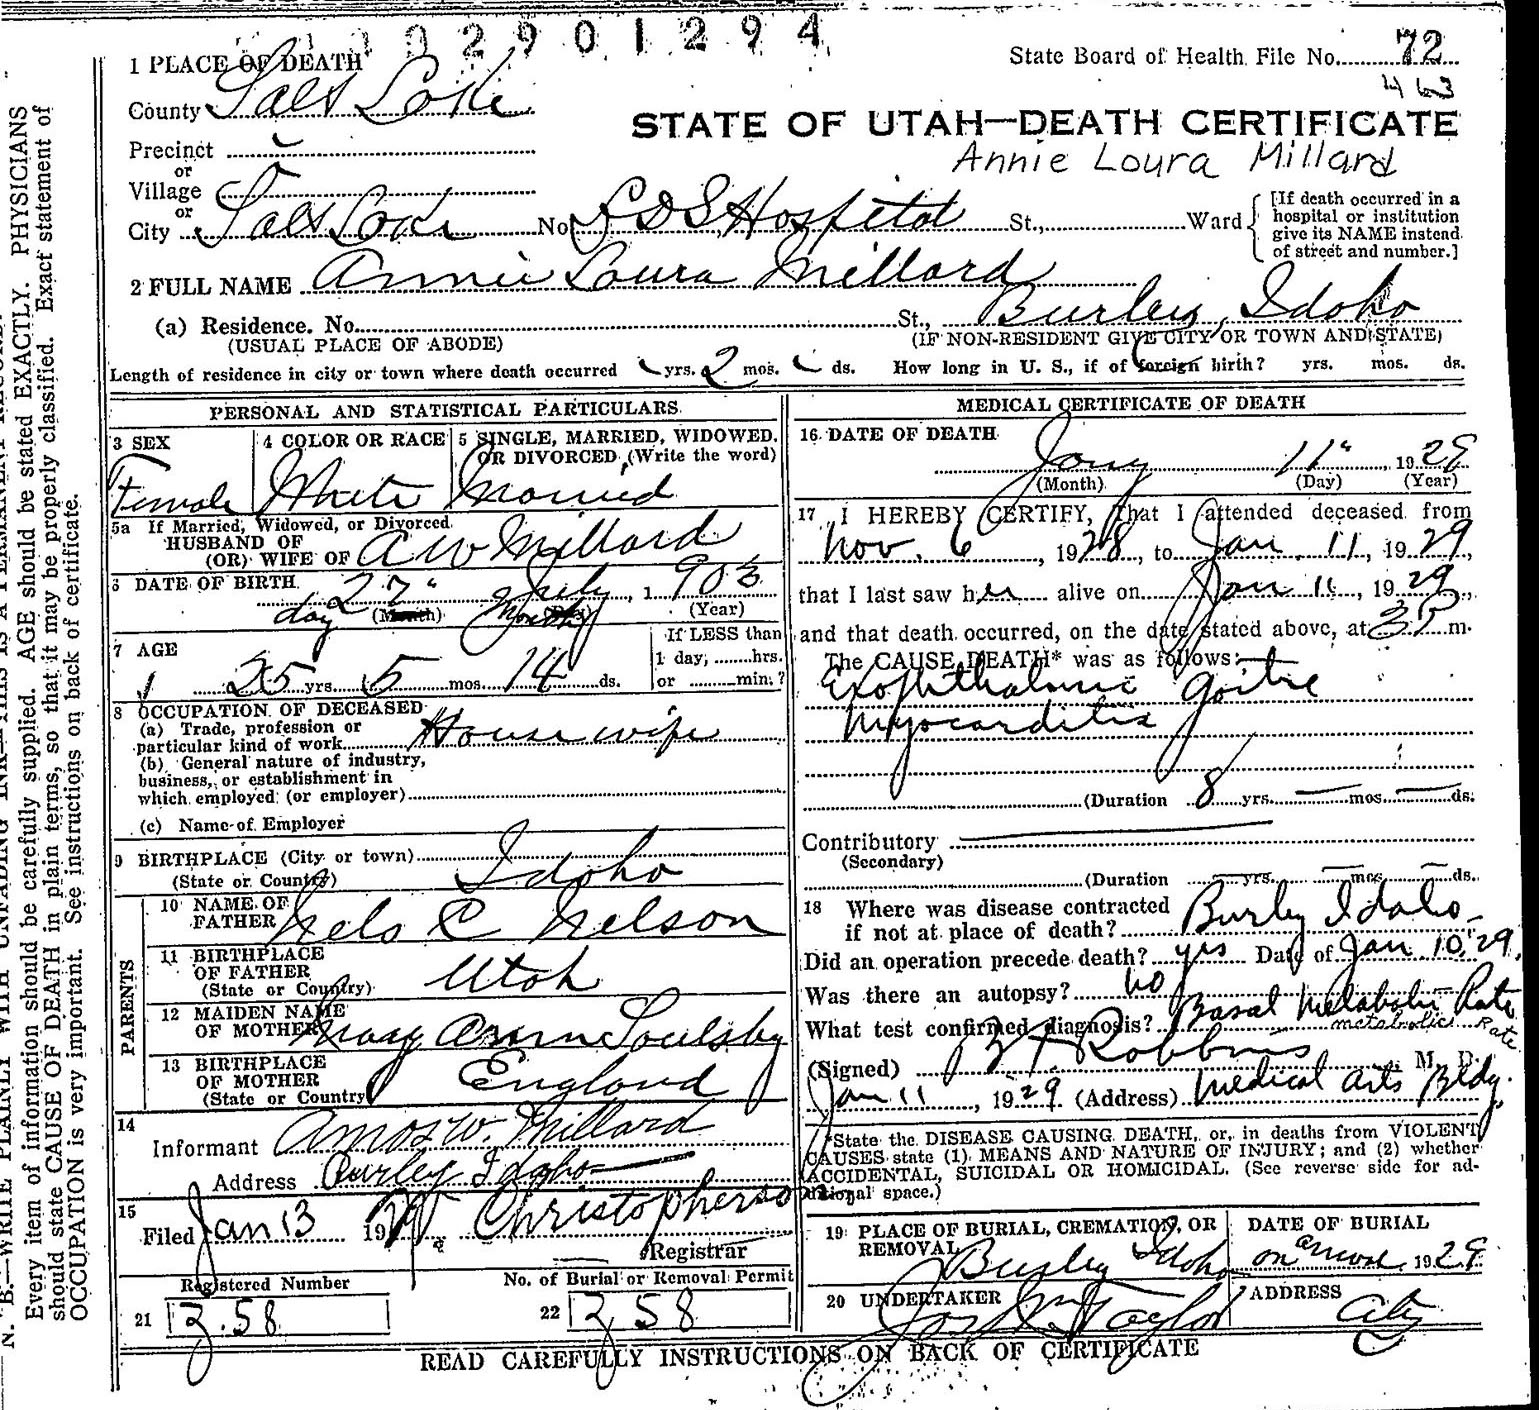 2901294
State Board of Health File No. 72
463
1 PLACE OF DEATH
County Salt Lake
STATE OF UTAH—DEATH CERTIFICATE
Annie Loura Millard
Precinct
or
Village
or
City Salt Lake No. L D S Hospital St., Ward
[If death occurred in a hospital or institution give its NAME instead of street and number.]
2 FULL NAME Annie Loura Millard
(a) Residence. No. St., Burley, Idaho
(USUAL PLACE OF ABODE) (IF NON-RESIDENT GIVE CITY OR TOWN AND STATE)
Length of residence in city or town where death occurred yrs. 2 mos. ds. How long in U. S., if of foreign birth? yrs. mos. ds.
PERSONAL AND STATISTICAL PARTICULARS
3 SEX Female
4 COLOR OR RACE White
5 SINGLE, MARRIED, WIDOWED, OR DIVORCED, (Write the word) Married
5a If Married, Widowed, or Divorced
HUSBAND OF
(OR) WIFE OF A W Millard
6 DATE OF BIRTH 27" July, 1903
day (Month) (Day) (Year)
7 AGE
25 yrs. 5 mos. 14 ds.
If LESS than
1 day, hrs.
or min.?
8 OCCUPATION OF DECEASED
(a) Trade, profession or
particular kind of work House wife
(b) General nature of industry,
business, or establishment in
which employed (or employer)
(c) Name of Employer
9 BIRTHPLACE (City or town)
(State or Country) Idaho
PARENTS
10 NAME OF
FATHER Nels C Nelson
11 BIRTHPLACE
OF FATHER
(State or Country) Utah
12 MAIDEN NAME
OF MOTHER Mary Ann Soulsby
13 BIRTHPLACE
OF MOTHER
(State or Country) England
14
Informant Amos W. Millard
Address Burley Idaho
15
Filed Jan 13 19 Christopherson
Registrar
Registered Number
21 Z.58
No. of Burial or Removal Permit
22 Z58
MEDICAL CERTIFICATE OF DEATH
16 DATE OF DEATH
Jany 11", 1929
(Month) (Day) (Year)
17 I HEREBY CERTIFY, that I attended deceased from
Nov. 6, 1928, to Jan. 11, 1929,
that I last saw her alive on Jan 11, 1929,
and that death occurred, on the date stated above, at 3 P m.
The CAUSE DEATH* was as follows:
Exophthalmic goitre
Myocarditis
(Duration 8 yrs. — mos. — ds.
Contributory
(Secondary)
(Duration — yrs. — mos. — ds.
18 Where was disease contracted
if not at place of death? Burley Idaho
Did an operation precede death? yes Date of Jan 10, 29.
Was there an autopsy? no
What test confirmed diagnosis? Basal Metabolic Rate
metabolic Rate
(Signed) Robbins M. D.
Jan 11, 1929 (Address) Medical Arts Bldg.
*State the DISEASE CAUSING DEATH, or, in deaths from VIOLENT
CAUSES state (1) MEANS AND NATURE OF INJURY; and (2) whether
ACCIDENTAL, SUICIDAL OR HOMICIDAL. (See reverse side for ad-
ditional space.)
19 PLACE OF BURIAL, CREMATION, OR
REMOVAL Burley Idaho
DATE OF BURIAL
1929
20 UNDERTAKER Jos Wm Taylor
ADDRESS City
READ CAREFULLY INSTRUCTIONS ON BACK OF CERTIFICATE
N. B.—WRITE PLAINLY WITH UNFADING INK—THIS IS A PERMANENT RECORD.
Every item of information should be carefully supplied. AGE should be stated EXACTLY. PHYSICIANS
should state CAUSE OF DEATH in plain terms, so that it may be properly classified. Exact statement of
OCCUPATION is very important. See instructions on back of certificate.